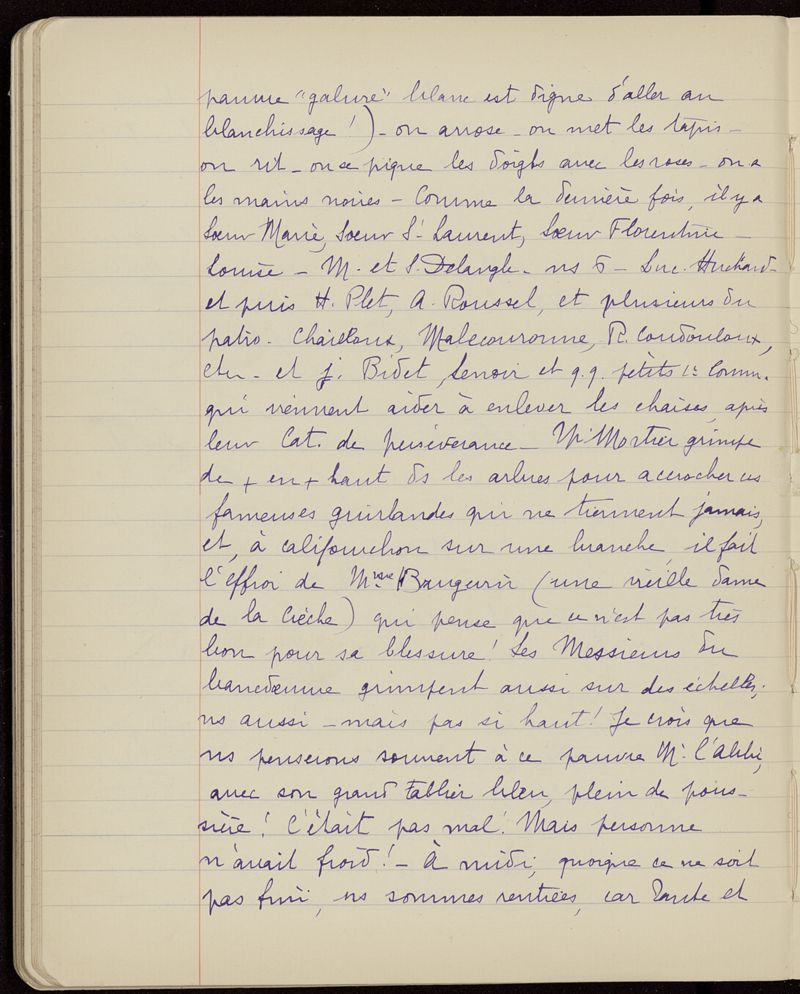 pauvre "galure" blanc est digne d'aller au
blanchissage !) - on arrose - on met les tapis -
on rit - on se pique les doigts avec les roses - on a
les mains noires - Comme la dernière fois, il y a
Sœur Marie, Sœur St Laurent, Sœur Florentine -
Louise - M. et S. Delangle - ns 6 - Luc. Huchard -
et puis H. Plet, A. Roussel, et plusieurs du
patro. Chaieloux, Malecouronne, R. Coudouloux,
etc. - et J. Bidet, Lenoir et q.q. petits 1r Comm.
qui viennent aider à enlever les chaises, après
leur Cat. de persévérance - Mr Mortier grimpe
de + en + haut ds les arbres pour accrocher ces
fameuses guirlandes qui ne tiennent jamais,
et, à califourchon sur une branche, il fait
l'effroi de Mme (une vieille dame
de la Crèche) qui pense que ce n'est pas très
bon pour sa blessure ! Les Messieurs du
grimpent aussi sur des échelles,
ns aussi - mais pas si haut ! Je crois que
ns penserons souvent à ce pauvre Mr l'Abbé,
avec son grand tablier bleu, plein de pous-
sière ! C'était pas mal ! Mais personne
n'avait froid ! - À midi, quoique ce ne soit
pas fini, ns sommes rentrées, car Tante et